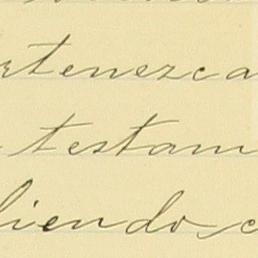 rtenezca
testam
liendo c